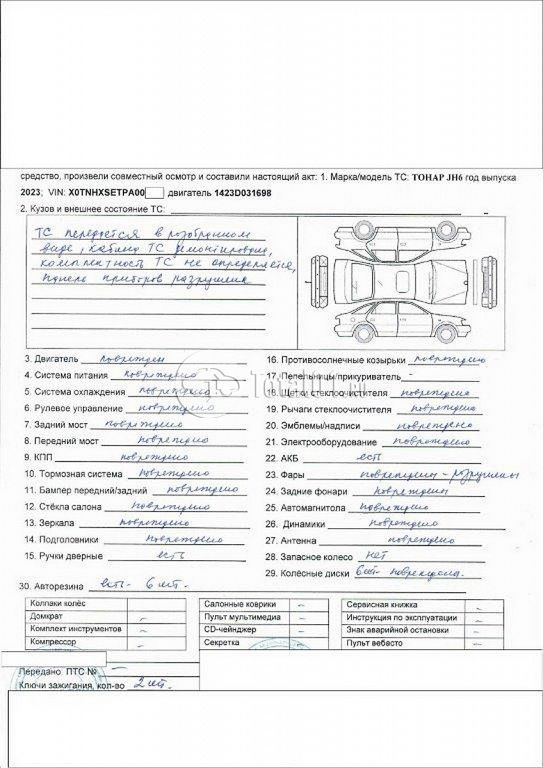 средство, произвели совместный осмотр и составили настоящий акт: 1. Марка/модель ТС: ТОНАР JH6 год выпуска
2023; VIN: X0TNHXSETPA00 двигатель 1423D031698
2. Кузов и внешнее состояние ТС: –
ТС передаётся в разобранном
виде, кабина ТС демонтирована,
комплектность ТС не определяется,
панель приборов разрушена
3. Двигатель повреждён
4. Система питания повреждено
5. Система охлаждения повреждено
6. Рулевое управление повреждено
7. Задний мост повреждено
8. Передний мост повреждено
9. КПП повреждено
10. Тормозная система повреждено
11. Бампер передний/задний повреждено
12. Стёкла салона повреждено
13. Зеркала повреждено
14. Подголовники повреждено
15. Ручки дверные есть
16. Противосолнечные козырьки повреждено
17. Пепельницы/прикуриватель –
18. Щетки стеклоочистителя повреждена
19. Рычаги стеклоочистителя повреждено
20. Эмблемы/надписи повреждена
21. Электрооборудование повреждено
22. АКБ есть
23. Фары повреждены - разрушены
24. Задние фонари повреждены
25. Автомагнитола повреждено
26. Динамики повреждено
27. Антенна повреждено
28. Запасное колесо нет
29. Колёсные диски 6шт повреждена.
30. Авторезина есть - 6 шт.
Колпаки колёс
Домкрат –
Комплект инструментов –
Компрессор –
Салонные коврики –
Пульт мультимедиа –
CD-чейнджер –
Секретка
Сервисная книжка –
Инструкция по эксплуатации –
Знак аварийной остановки –
Пульт вебасто –
Передано: ПТС №
Ключи зажигания, кол-во 2 шт.